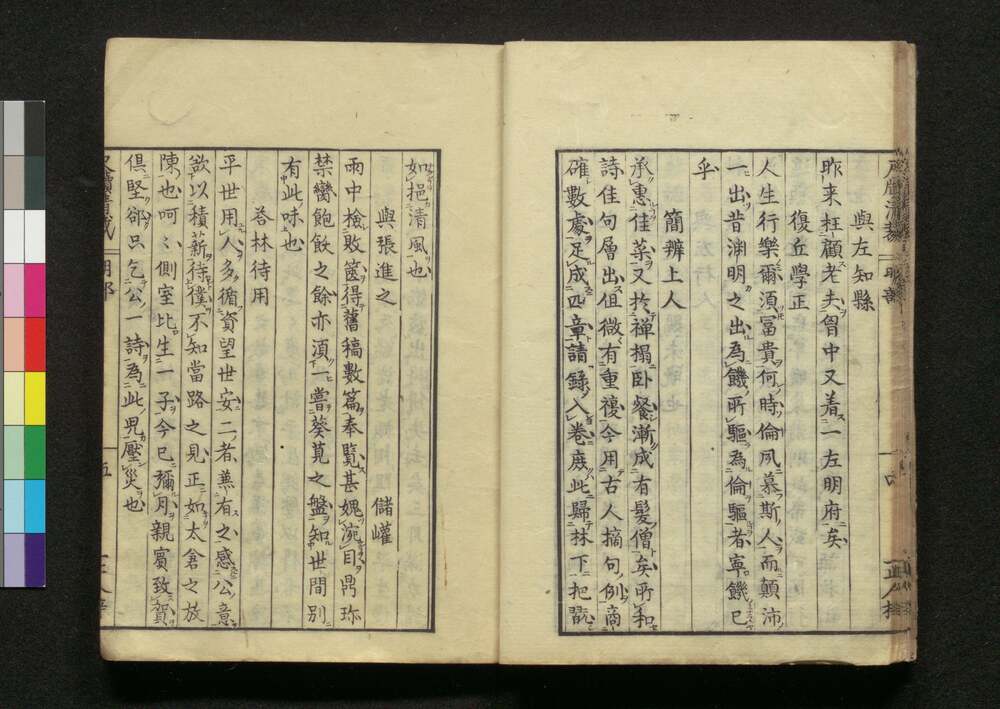 與左知縣
昨来枉顧老夫曾中又着一左明府矣
復丘學正
人生行樂爾須冨貴何時倫夙慕斯人而顛沛
一出昔渊明之出為饑所驅為倫驅者寕饑已
乎
簡辨上人
承惠佳菜又扵禅搨卧餐漸成有髮僧矣所和
詩佳句層出但微有重複今用古人摘句例商
確數處足成四章請録入卷庻此歸林下把翫
如挹清風也
與張進之
儲巏
雨中檢敗篋得舊稿數篇奉覧甚媿涴目鼎珎
禁臠飽飫之餘亦湏一嘗葵莧之盤知世間别
有此味也
荅林待用
平世用人多循資望世安二者兼有之感公意
欲以積薪待僕不知當路之見正如太倉之放
陳也呵〻側室比生一子今已彌月親賓致賀
俱堅卻只乞公一詩為此児壓災也